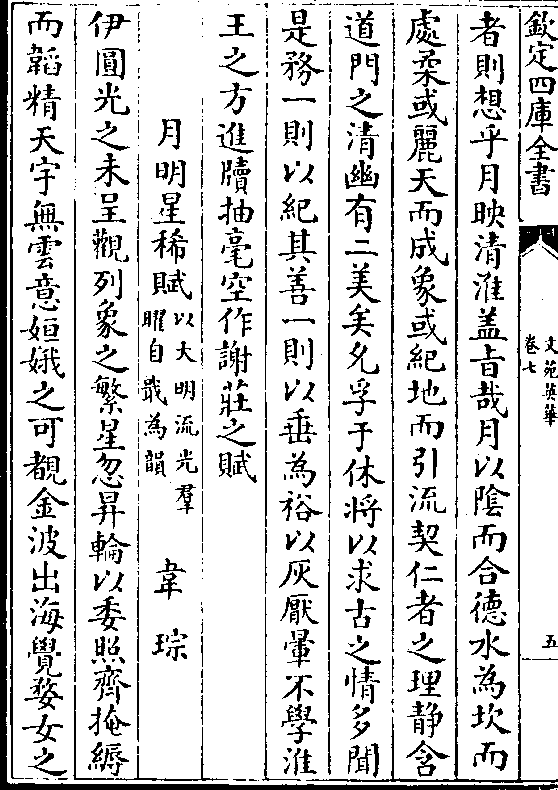 欽定四庫全書
文苑英華
卷七
五
者則想乎月映清淮盖㫖哉月以陰而合德水為坎而
處柔或麗天而成象或紀地而引流契仁者之理静含
道門之清幽有二美矣允孚于休將以求古之情多聞
是務一則以紀其善一則以垂為裕以灰厭暈不學淮
王之方進牘抽毫空作謝莊之賦
月明星稀賦以大明流光羣
曜自戢為韻
韋琮
伊圓光之未呈觀列象之繁星忽昇輪以委照齊掩縟
而韜精天宇無雲意姮娥之可覩金波出海覺婺女之